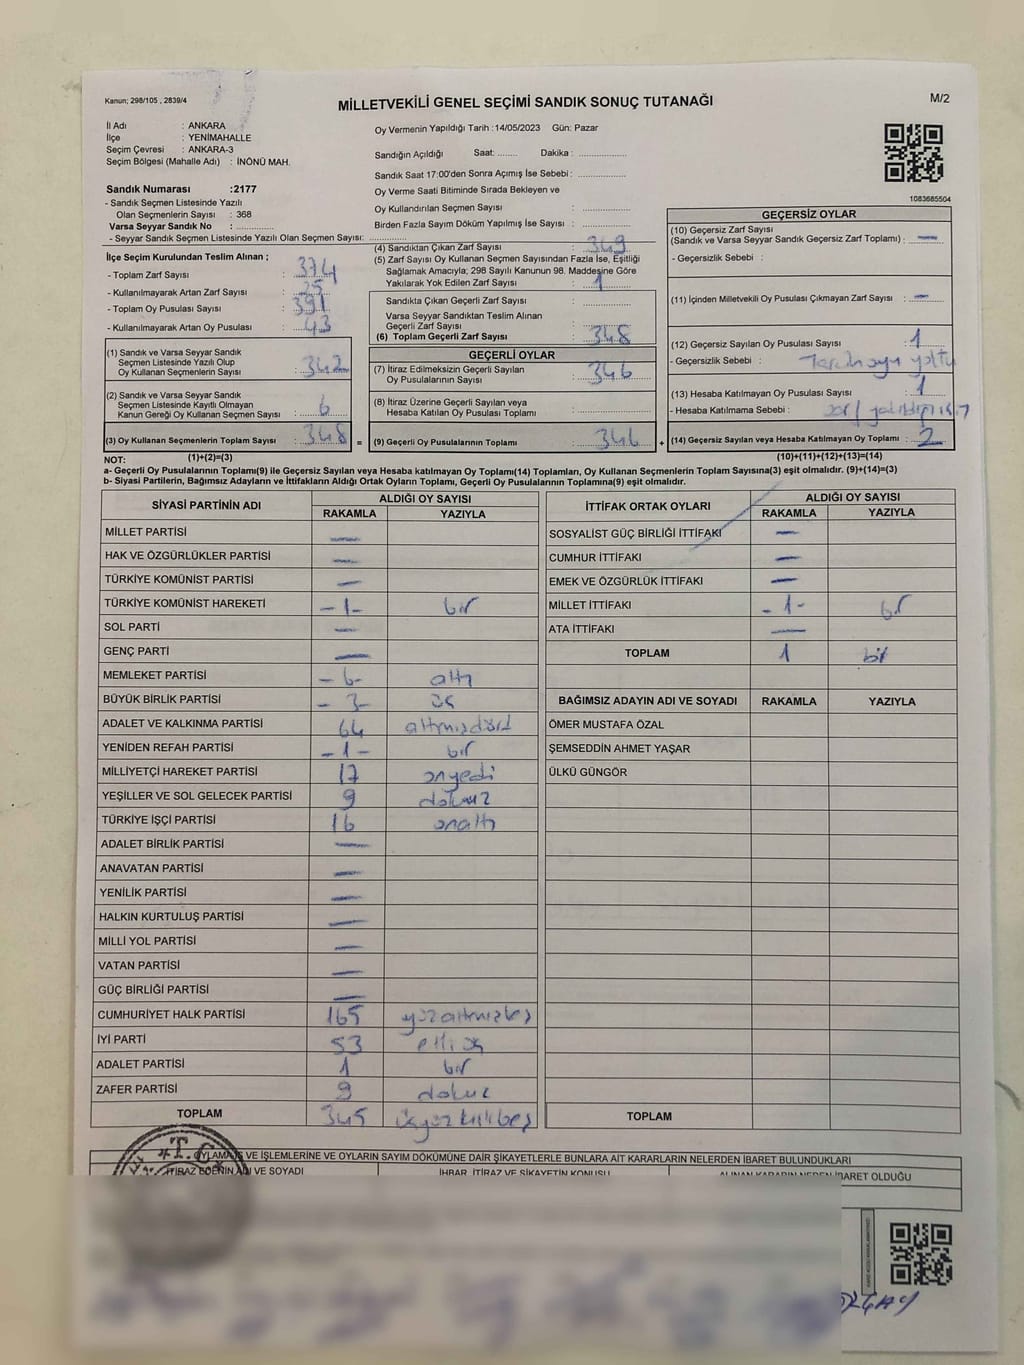 Kanun; 298/105 , 2839/4
MİLLETVEKİLİ GENEL SEÇİMİ SANDIK SONUÇ TUTANAĞI
M/2
İl Adı : ANKARA
İlçe : YENİMAHALLE
Seçim Çevresi : ANKARA-3
Seçim Bölgesi (Mahalle Adı) : İNÖNÜ MAH.
Sandık Numarası :2177
- Sandık Seçmen Listesinde Yazılı
Olan Seçmenlerin Sayısı : 368
Varsa Seyyar Sandık No : ..............
- Seyyar Sandık Seçmen Listesinde Yazılı Olan Seçmen Sayısı: ..............
İlçe Seçim Kurulundan Teslim Alınan ;
- Toplam Zarf Sayısı : 374
- Kullanılmayarak Artan Zarf Sayısı : 25
- Toplam Oy Pusulası Sayısı : 391
- Kullanılmayarak Artan Oy Pusulası : 43
(1) Sandık ve Varsa Seyyar Sandık
Seçmen Listesinde Yazılı Olup
Oy Kullanan Seçmenlerin Sayısı : 342
(2) Sandık ve Varsa Seyyar Sandık
Seçmen Listesinde Kayıtlı Olmayan
Kanun Gereği Oy Kullanan Seçmen Sayısı : 6
(3) Oy Kullanan Seçmenlerin Toplam Sayısı : 348 =
Oy Vermenin Yapıldığı Tarih :14/05/2023 Gün: Pazar
Sandığın Açıldığı Saat: ........ Dakika : ..................
Sandık Saat 17:00'den Sonra Açımış İse Sebebi : ..................
Oy Verme Saati Bitiminde Sırada Bekleyen ve
Oy Kullandırılan Seçmen Sayısı : ..................
Birden Fazla Sayım Döküm Yapılmış İse Sayısı : ..................
(4) Sandıktan Çıkan Zarf Sayısı : 349
(5) Zarf Sayısı Oy Kullanan Seçmen Sayısından Fazla İse, Eşitliği
Sağlamak Amacıyla; 298 Sayılı Kanunun 98. Maddesine Göre
Yakılarak Yok Edilen Zarf Sayısı : 1
Sandıkta Çıkan Geçerli Zarf Sayısı : ..................
Varsa Seyyar Sandıktan Teslim Alınan
Geçerli Zarf Sayısı : ..................
(6) Toplam Geçerli Zarf Sayısı : 348
GEÇERLİ OYLAR
(7) İtiraz Edilmeksizin Geçerli Sayılan
Oy Pusulalarının Sayısı : 346
(8) İtiraz Üzerine Geçerli Sayılan veya
Hesaba Katılan Oy Pusulası Toplamı : ..................
(9) Geçerli Oy Pusulalarının Toplamı : 346 +
1083685504
GEÇERSİZ OYLAR
(10) Geçersiz Zarf Sayısı
(Sandık ve Varsa Seyyar Sandık Geçersiz Zarf Toplamı) : —
- Geçersizlik Sebebi :
(11) İçinden Milletvekili Oy Pusulası Çıkmayan Zarf Sayısı : —
(12) Geçersiz Sayılan Oy Pusulası Sayısı : 1
- Geçersizlik Sebebi :
(13) Hesaba Katılmayan Oy Pusulası Sayısı : 1
- Hesaba Katılmama Sebebi :
(14) Geçersiz Sayılan veya Hesaba Katılmayan Oy Toplamı : 2
NOT: (1)+(2)=(3) (10)+(11)+(12)+(13)=(14)
a- Geçerli Oy Pusulalarının Toplamı(9) ile Geçersiz Sayılan veya Hesaba katılmayan Oy Toplamı(14) Toplamları, Oy Kullanan Seçmenlerin Toplam Sayısına(3) eşit olmalıdır. (9)+(14)=(3)
b- Siyasi Partilerin, Bağımsız Adayların ve İttifakların Aldığı Ortak Oyların Toplamı, Geçerli Oy Pusulalarının Toplamına(9) eşit olmalıdır.
SİYASİ PARTİNİN ADI ALDIĞI OY SAYISI
RAKAMLA YAZIYLA
MİLLET PARTİSİ —
HAK VE ÖZGÜRLÜKLER PARTİSİ —
TÜRKİYE KOMÜNİST PARTİSİ —
TÜRKİYE KOMÜNİST HAREKETİ -1- bir
SOL PARTİ —
GENÇ PARTİ —
MEMLEKET PARTİSİ -6- altı
BÜYÜK BİRLİK PARTİSİ -3- üç
ADALET VE KALKINMA PARTİSİ 64 altmışdört
YENİDEN REFAH PARTİSİ -1- bir
MİLLİYETÇİ HAREKET PARTİSİ 17 onyedi
YEŞİLLER VE SOL GELECEK PARTİSİ 9 dokuz
TÜRKİYE İŞÇİ PARTİSİ 16 onaltı
ADALET BİRLİK PARTİSİ —
ANAVATAN PARTİSİ —
YENİLİK PARTİSİ —
HALKIN KURTULUŞ PARTİSİ —
MİLLİ YOL PARTİSİ —
VATAN PARTİSİ —
GÜÇ BİRLİĞİ PARTİSİ —
CUMHURİYET HALK PARTİSİ 165 yüzaltmışbeş
İYİ PARTİ 53 elliüç
ADALET PARTİSİ 1 bir
ZAFER PARTİSİ 9 dokuz
TOPLAM 345 üçyüzkırkbeş
İTTİFAK ORTAK OYLARI ALDIĞI OY SAYISI
RAKAMLA YAZIYLA
SOSYALİST GÜÇ BİRLİĞİ İTTİFAKI —
CUMHUR İTTİFAKI —
EMEK VE ÖZGÜRLÜK İTTİFAKI —
MİLLET İTTİFAKI -1- bir
ATA İTTİFAKI —
TOPLAM 1 bir
BAĞIMSIZ ADAYIN ADI VE SOYADI RAKAMLA YAZIYLA
ÖMER MUSTAFA ÖZAL
ŞEMSEDDİN AHMET YAŞAR
ÜLKÜ GÜNGÖR
TOPLAM
T.C.
OYLAMA İŞ VE İŞLEMLERİNE VE OYLARIN SAYIM DÖKÜMÜNE DAİR ŞİKAYETLERLE BUNLARA AİT KARARLARIN NELERDEN İBARET BULUNDUKLARI
İTİRAZ EDENİN ADI VE SOYADI İHBAR, İTİRAZ VE ŞİKAYETİN KONUSU ALINAN KARARIN NEDEN İBARET OLDUĞU